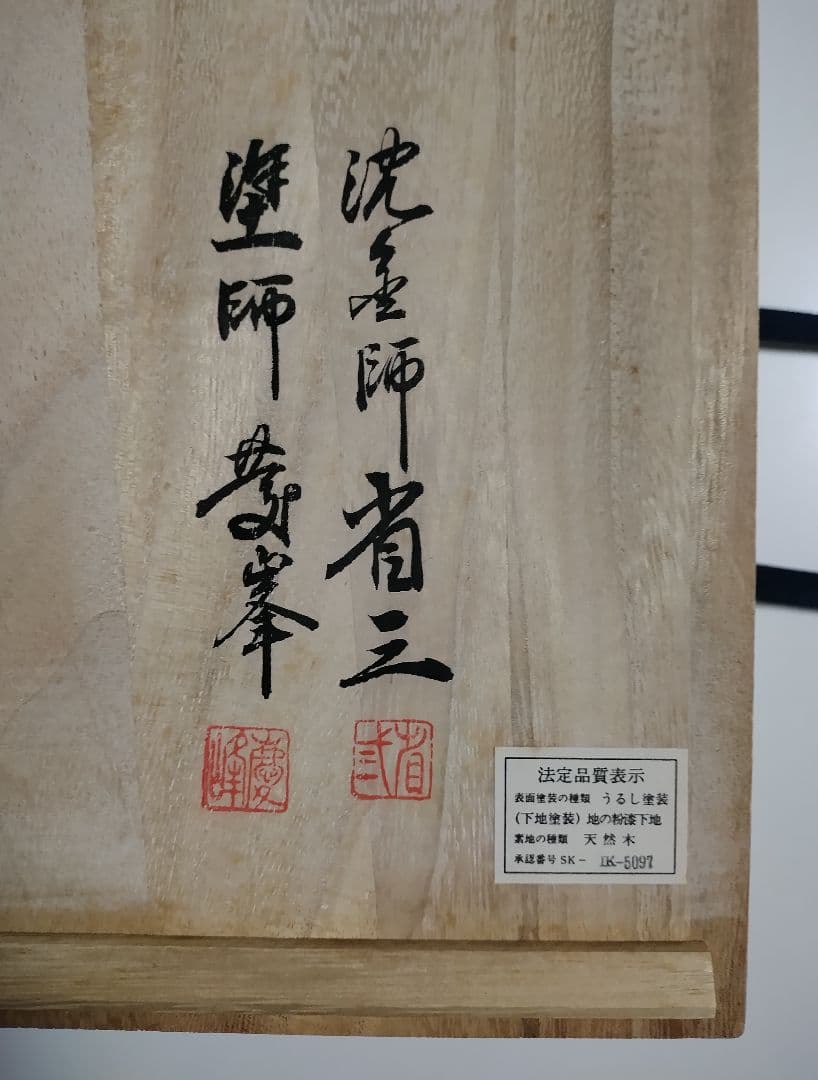 沈金師 省三
塗師 慶峯
省三
慶峰
法定品質表示
表面塗装の種類 うるし塗装
(下地塗装) 地の粉漆下地
素地の種類 天然木
承認番号 SK- IK-5097